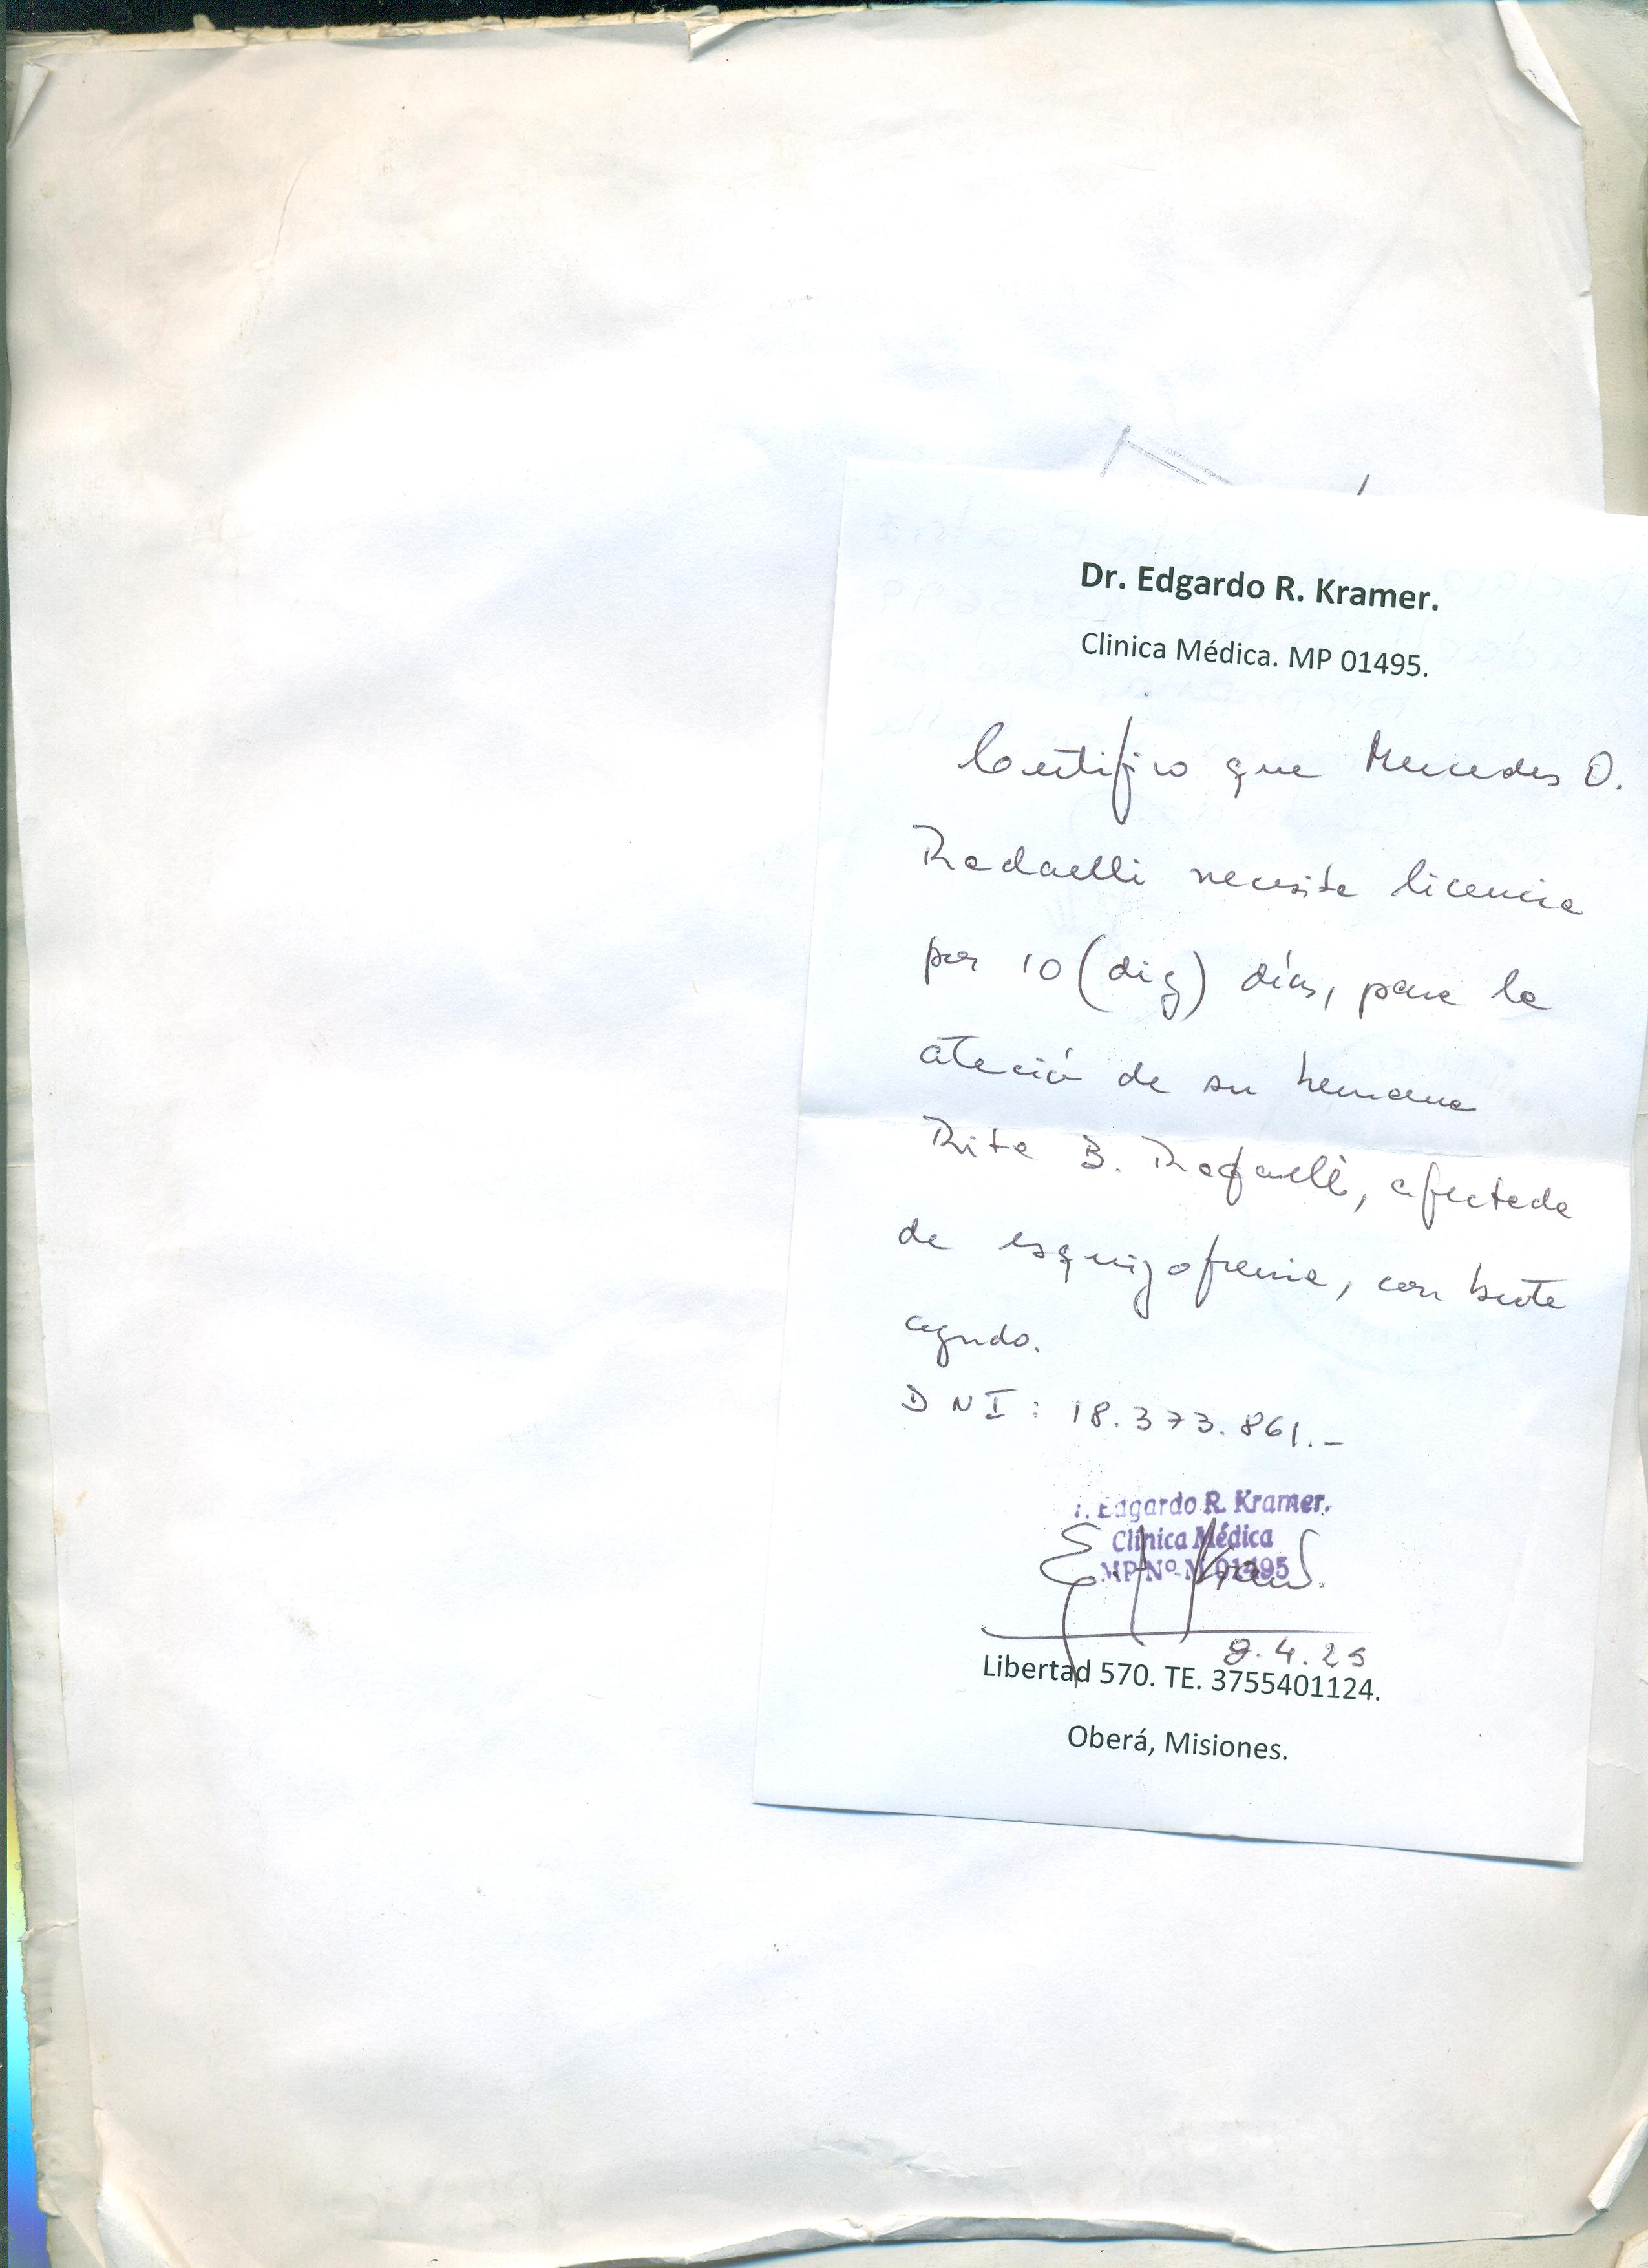 Dr. Edgardo R. Kramer.
Clinica Médica. MP 01495.
Certifico que Mercedes O.
Redaelli necesita licencia
por 10 (diez) días, para la
ateción de su hermana
Rita B. Redaelli, afectada
de esquizofrenia, con brote
agudo.
DNI: 18.373.861.-
. Edgardo R. Kramer.
Clínica Médica
MP Nº M 01495
9.4.25
Libertad 570. TE. 3755401124.
Oberá, Misiones.